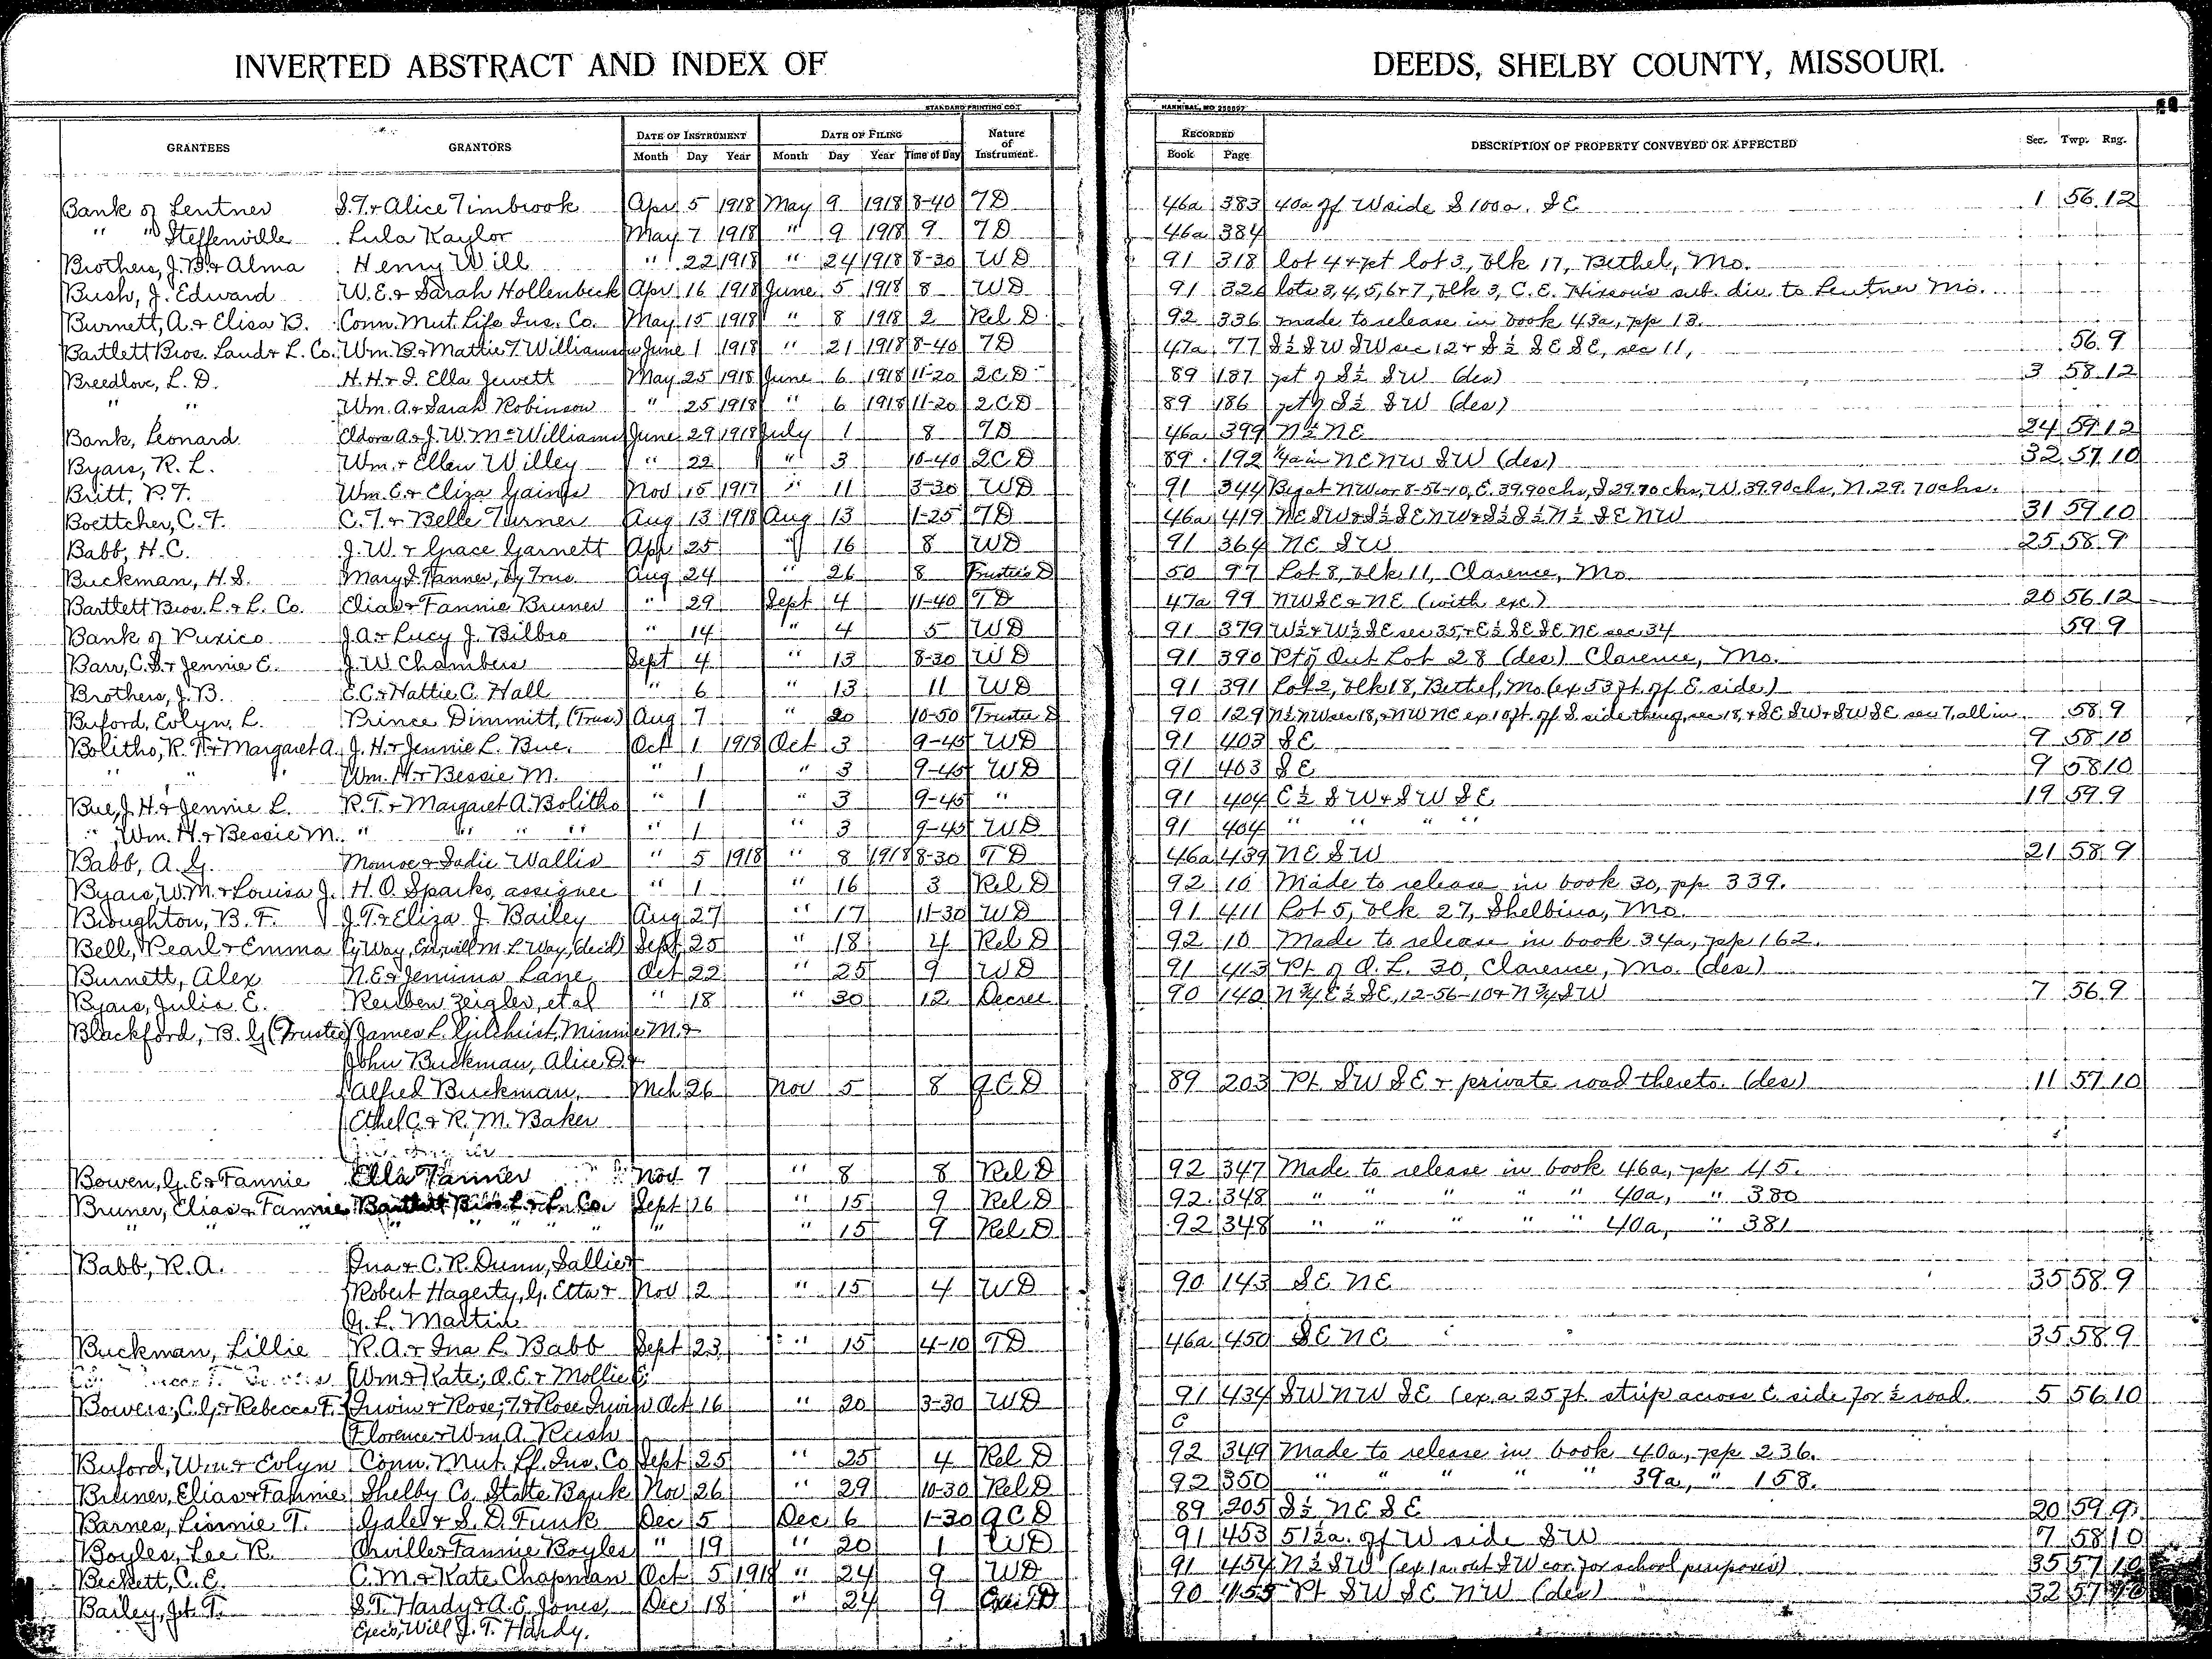 INVERTED ABSTRACT AND INDEX OF DEEDS, SHELBY COUNTY, MISSOURI.
STANDARD PRINTING CO. HANNIBAL, MO
GRANTEES GRANTORS DATE OF INSTRUMENT DATE OF FILING Nature of Instrument. RECORDED DESCRIPTION OF PROPERTY CONVEYED OR AFFECTED Sec. Twp. Rng.
Month Day Year Month Day Year Time of Day Book Page
Bank of Lentner S.T. & Alice Timbrook Apr 5 1918 May 9 1918 8-40 TD 46a 383 40a off W side S 100a. SE 1 56 12
" " Steffenville Lula Kaylor May 7 1918 " 9 1918 9 TD 46a 384
Brothers, J.B. & Alma Henry Will " 22 1918 " 24 1918 8-30 WD 91 318 lot 4 & pt lot 3, blk 17, Bethel, Mo.
Bush, J. Edward W.E. & Sarah Hollenbeck Apr 16 1918 June 5 1918 8 WD 91 326 lots 3, 4, 5, 6 & 7, blk 3, C.E. Hixson's sub. div. to Lentner Mo.
Burnett, A. & Elisa B. Conn. Mut. Life Ins. Co. May 15 1918 " 8 1918 2 Rel D 92 336 made to release in book 43a, pp 13.
Bartlett Bros. Land & L. Co. Wm. B. & Mattie T. Williamson June 1 1918 " 21 1918 8-40 TD 47a 77 S½ SW SW sec 12 & S½ SE SE, sec 11, 56 9
Breedlove, L.D. H.H. & I. Ella Jewett May 25 1918 June 6 1918 11-20 2CD 89 187 pt of S½ SW (des) 3 58 12
" " Wm. A. & Sarah Robinson " 25 1918 " 6 1918 11-20 2CD 89 186 pt of S½ SW (des)
Bank, Leonard Eldora A. & J.W. McWilliams June 29 1918 July 1 8 TD 46a 399 N½ NE 24 59 12
Byars, R.L. Wm. & Ellen Willey " 22 " 3 10-40 2CD 89 192 ¼a in NE NW SW (des) 32 57 10
Britt, P.F. Wm. E. & Eliza Gaines Nov 15 1917 " 11 3-30 WD 91 344 Beg at NW cor 8-56-10, E. 39.90 chs, S 29.70 chs, W. 39.90 chs, N. 29.70 chs.
Boettcher, C.F. C.T. & Belle Turner Aug 13 1918 Aug 13 1-25 TD 46a 419 NE SW & S½ SE NW & S½ S½ N½ SE NW 31 59 10
Babb, H.C. J.W. & Grace Garnett Apr 25 " 16 8 WD 91 364 NE SW 25 58 9
Buckman, H.S. Mary S. Tanner, by Trus. Aug 24 " 26 8 Trustee's D 50 97 Lot 8, blk 11, Clarence, Mo.
Bartlett Bros. L. & L. Co. Elias & Fannie Bruner " 29 Sept 4 11-40 TD 47a 99 NW SE & NE (with exc) 20 56 12
Bank of Puxico J.A. & Lucy J. Bilbro " 14 " 4 5 WD 91 379 W½ & W½ SE sec 35, & E½ SE SE NE sec 34 59 9
Barr, C.S. & Jennie E. J.W. Chambers Sept 4 " 13 8-30 WD 91 390 Pt of Out Lot 28 (des) Clarence, Mo.
Brothers, J.B. E.C. & Hattie C. Hall " 6 " 13 11 WD 91 391 Lot 2, blk 18, Bethel, Mo (ex 53 ft. off E. side)
Buford, Evlyn, L. Prince Dimmitt, (Trus.) Aug 7 " 20 10-50 Trustee D 90 129 N½ NW sec 18, & NW NE ex 10 ft. off S. side thereof, sec 18, & SE SW & SW SE sec 7, all in 58 9
Bolitho, R.T. & Margaret A. J.H. & Jennie L. Bue. Oct 1 1918 Oct 3 9-45 WD 91 403 SE 9 58 10
" " " Wm. H. & Bessie M. " 1 " 3 9-45 WD 91 403 SE 9 58 10
Bue, J.H. & Jennie L. R.T. & Margaret A. Bolitho " 1 " 3 9-45 " 91 404 E½ SW & SW SE 19 59 9
" Wm. H. & Bessie M. " " " " " 1 " 3 9-45 WD 91 404 " " " "
Babb, A.G. Monroe & Sadie Wallis " 5 1918 " 8 1918 8-30 TD 46a 439 NE SW 21 58 9
Byars, W.M. & Louisa J. H.O. Sparks, assignee " 1 " 16 3 Rel D 92 10 Made to release in book 30, pp 339.
Broughton, B.F. J.T. & Eliza J. Bailey Aug 27 " 17 11-30 WD 91 411 Lot 5, blk 27, Shelbina, Mo.
Bell, Pearl & Emma Cy Way, Ex, will M.L. Way, (dec'd) Sept 25 " 18 4 Rel D 92 10 Made to release in book 34a, pp 162.
Burnett, Alex N.E. & Jemima Lane Oct 22 " 25 9 WD 91 413 Pt of O.L. 30, Clarence, Mo. (des)
Byars, Julia E. Reuben Zeigler, et al " 18 " 30 12 Decree 90 140 N¾ E½ SE, 12-56-10 & N¾ SW 7 56 9
Blackford, B.G. (Trustee) James L. Gilchrist, Minnie M. &
John Buckman, Alice D. &
Alfred Buckman, Mch 26 Nov 5 8 QCD 89 203 Pt SW SE & private road thereto. (des) 11 57 10
Ethel C. & R.M. Baker
Bowen, G.E. & Fannie Ella Tanner Nov 7 " 8 8 Rel D 92 347 Made to release in book 46a, pp 45.
Bruner, Elias & Fannie Bartlett Bros. L. & L. Co. Sept 26 " 15 9 Rel D 92 348 " " " " " 40a, " 380
" " " " " " " " " 15 9 Rel D 92 348 " " " " " 40a, " 381
Babb, R.A. Ina & C.R. Dunn, Sallie &
Robert Hagerty, G. Etta & Nov 2 " 15 4 WD 90 143 SE NE 35 58 9
G.L. Martin
Buckman, Lillie R.A. & Ina L. Babb Sept 23 " 15 4-10 TD 46a 450 SE NE 35 58 9
Wm & Kate; O.E. & Mollie E.
Bowers, C.G. & Rebecca F. Irwin & Rose; T. & Rose Irwin Oct 16 " 20 3-30 WD 91 434 SW NW SE (ex. a 25 ft. strip across E. side for ½ road. 5 56 10
Florence & Wm A. Rush
Buford, Wm. & Evlyn Conn. Mut. Lf. Ins. Co Sept 25 " 25 4 Rel D 92 349 Made to release in book 40a, pp 236.
Bruner, Elias & Fannie Shelby Co. State Bank Nov 26 " 29 10-30 Rel D 92 350 " " " " " 39a, " 158.
Barnes, Linnie T. Gale & S.D. Funk Dec 5 Dec 6 1-30 QCD 89 205 S½ NE SE 20 59 9
Boyles, Lee R. Orville & Fannie Boyles " 19 " 20 1 WD 91 453 51½a. off W side SW 7 58 10
Beckett, C.E. C.M. & Kate Chapman Oct 5 1918 " 24 9 WD 91 454 N½ SW (ex 1a. out SW cor. for school purposes) 35 57 10
Bailey, J.T. S.T. Hardy & A.E. Jones, Dec 18 " 24 9 Exec's D 90 155 Pt SW SE NW (des) 32 57 10
Exec's, Will J.T. Hardy.